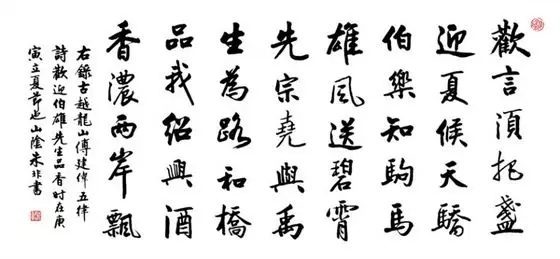 歡言須把盞
迎夏候天驕
伯樂知駒馬
雄風送碧霄
先宗堯與禹
生為路和橋
品我紹興酒
香濃兩岸飄
右錄古越龍山傅建偉五律
詩歡迎伯雄先生品香时在庚
寅立夏節也山陰朱非書